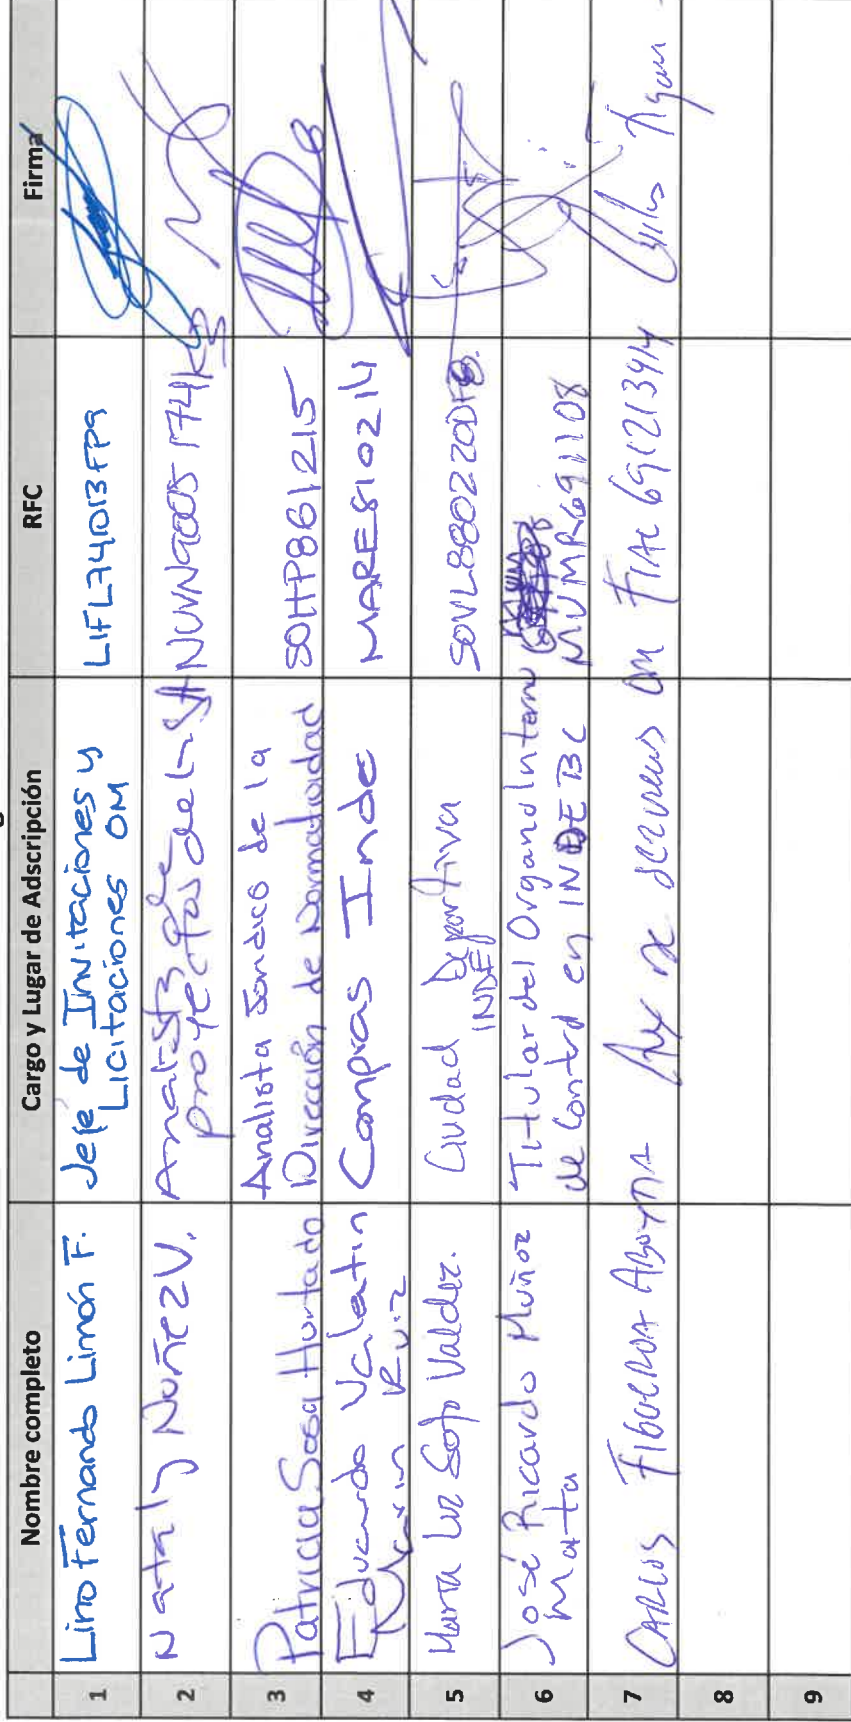 Nombre completo Cargo y Lugar de Adscripción RFC Firma
1 Lino Fernando Limón F. Jefe de Invitaciones y Licitaciones OM LIFL741013FP9
2 Nataly Nuñez V. Analista de proyectos de la SH NUVN900517
3 Patricia Sosa Hurtado Analista Jurídico de la Dirección de Normatividad SOHP861215
4 Eduardo Valatin Marin Ruiz Compras Inde MARE810214
5 Maria Luz Soto Valdez. Ciudad Deportiva INDE SOVL880220DF8.
6 José Ricardo Muñoz Mata Titular del Organo Interno de Control en INDEBC MUMR691108
7 CARLOS FIGUEROA Aux de OM
8
9